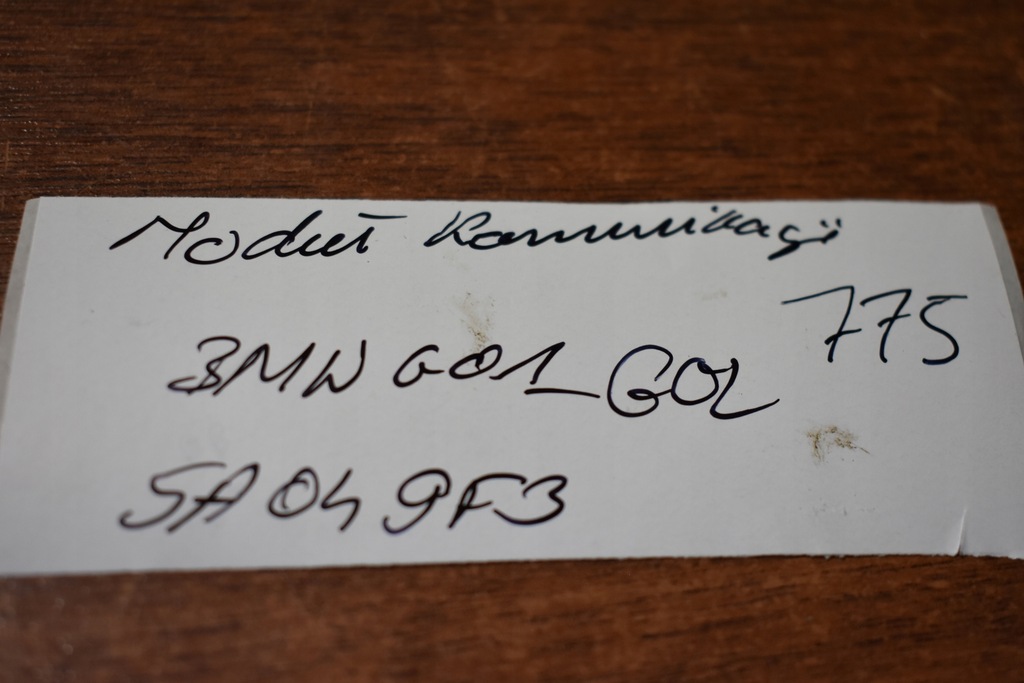 Moduł Komunikacji
775
BMW G01 G02
5A049F3